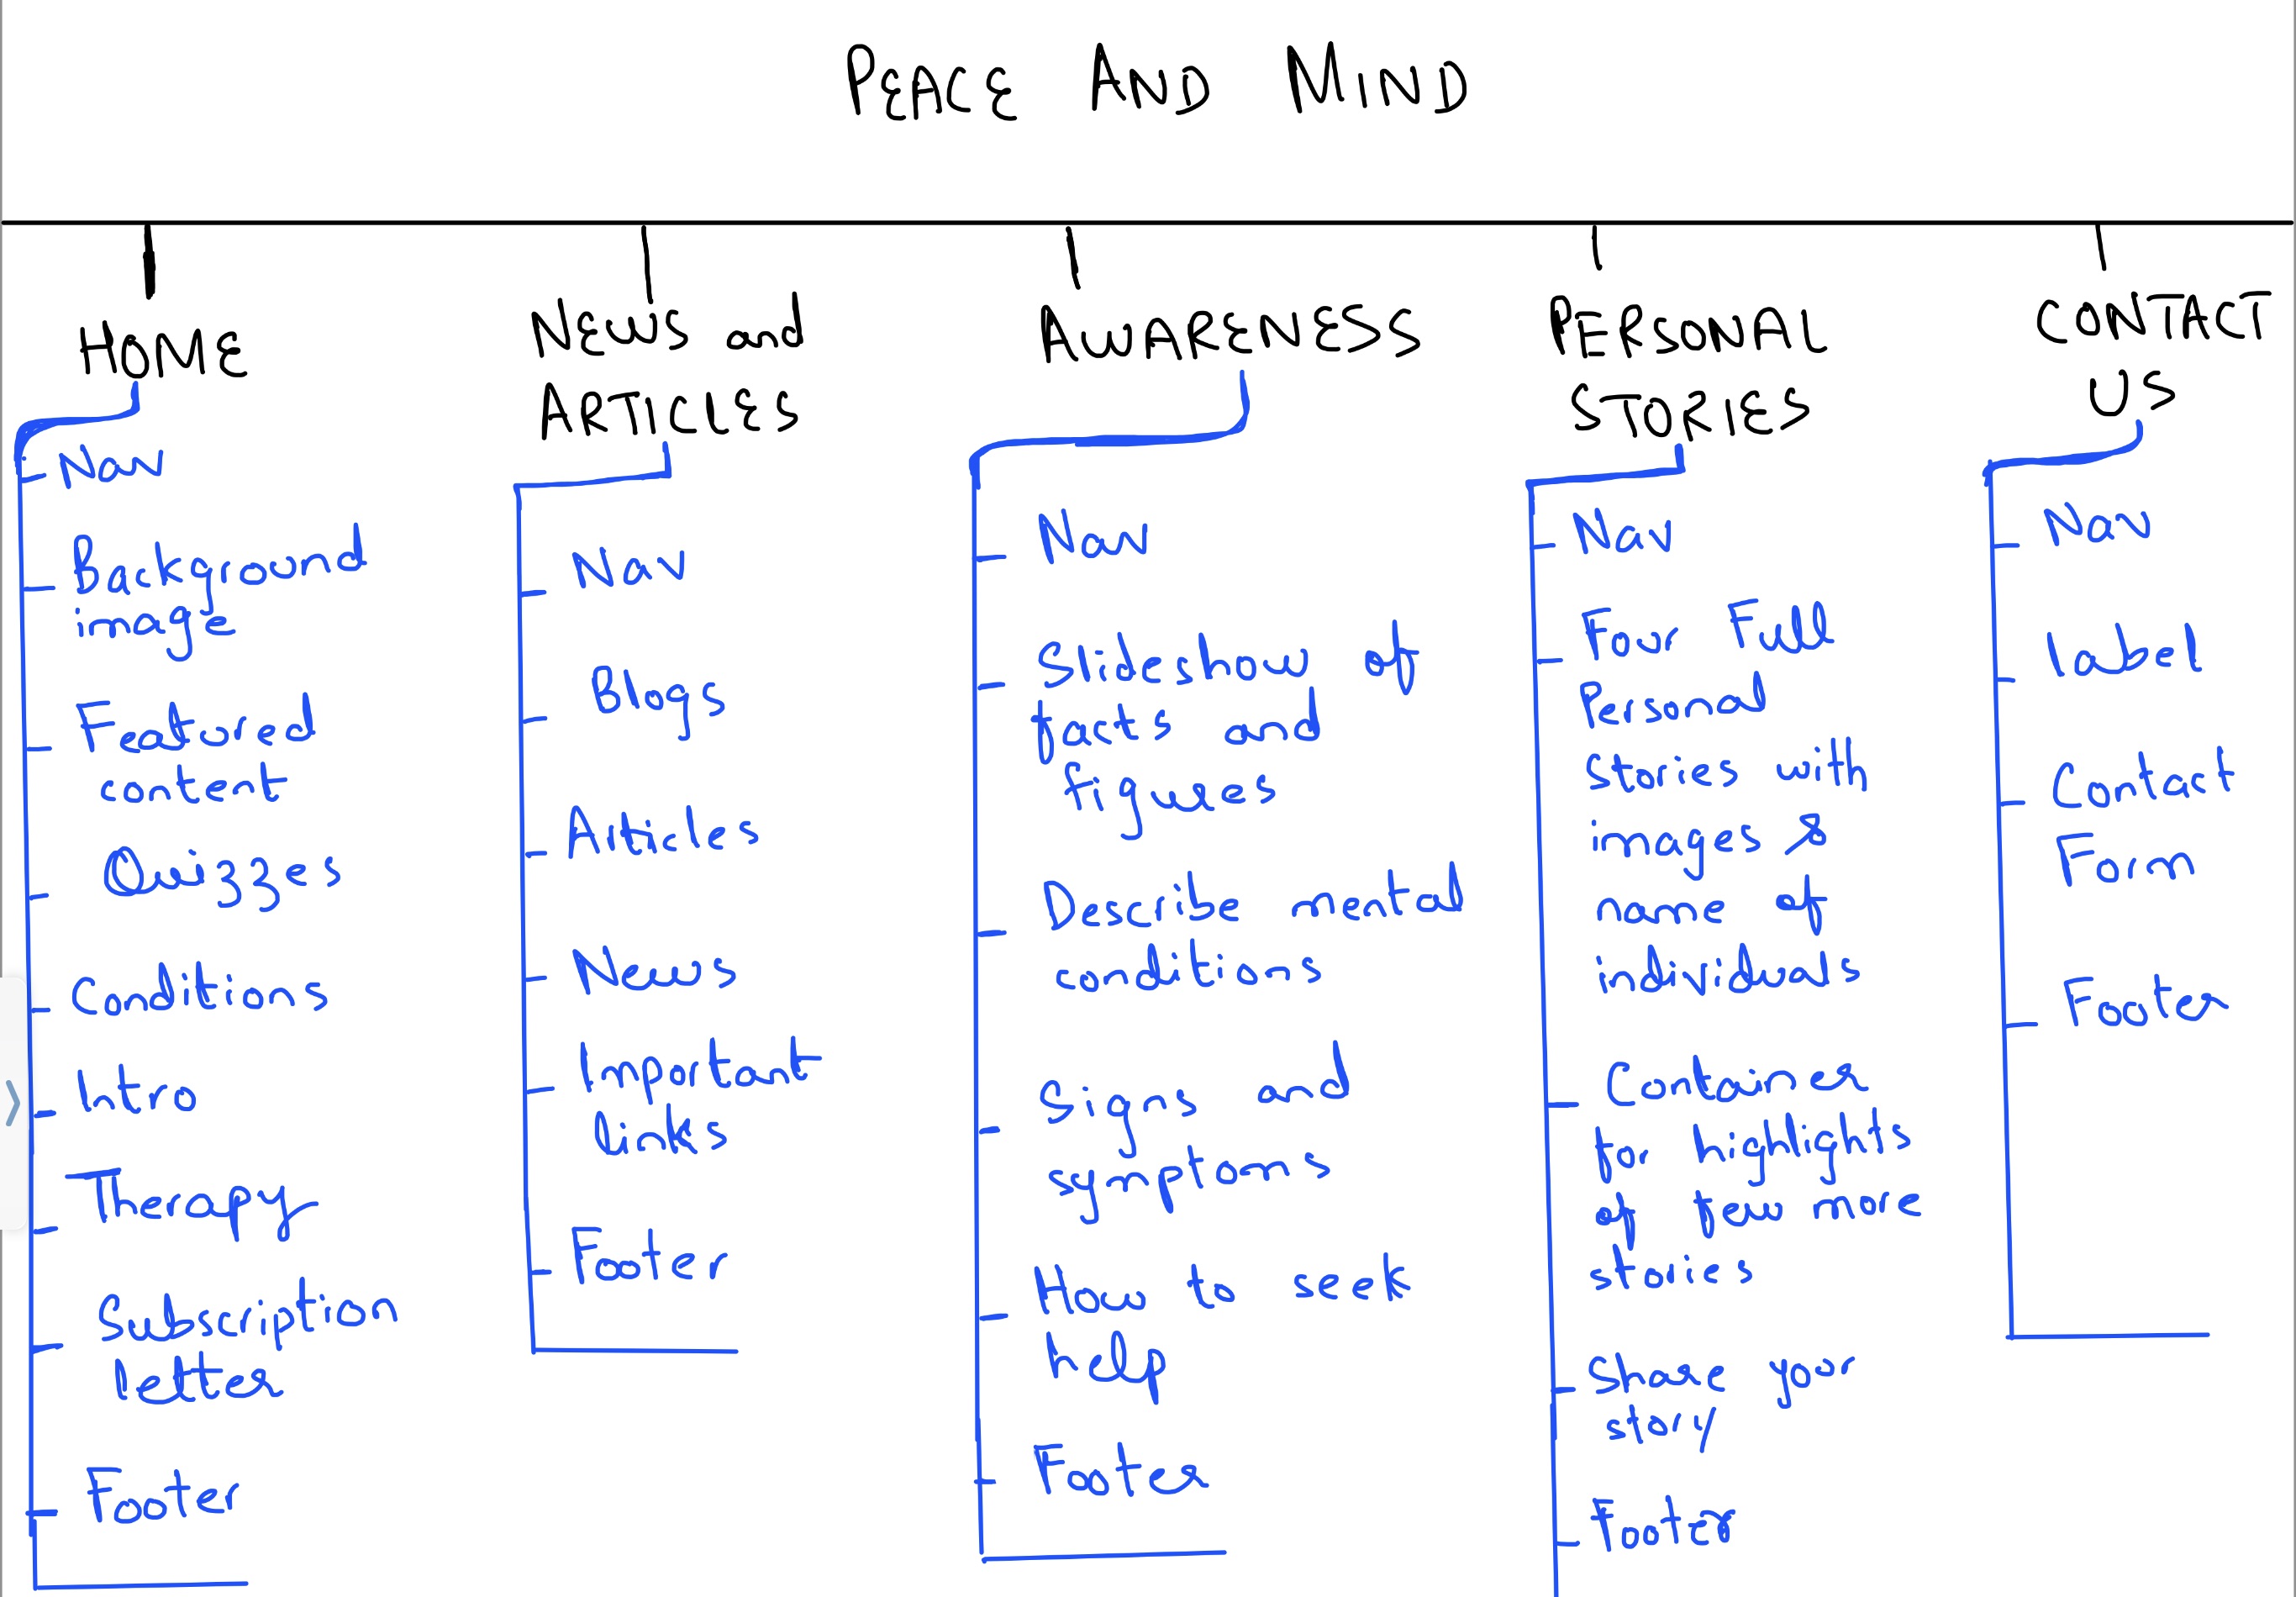 PEACE AND MIND
HOME
Nav
Background
image
Featured
content
Quizzes
Conditions
Intro
Therapy
Subscription
letter
Footer
News and
ARTICLES
Nav
Blogs
Articles
News
Important
links
Footer
AWARENESS
Nav
Slideshow of
facts and
figures
Describe mental
conditions
Signs and
symptoms
How to seek
help
Footer
PERSONAL
STORIES
Nav
Four Full
Personal
stories with
images &
name of
individuals
Container
for highlights
of few more
stories
Share your
story
Footer
CONTACT
US
Nav
Label
Contact
Form
Footer